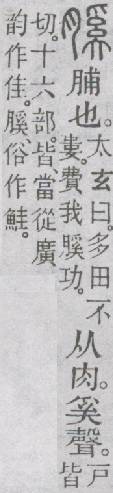 膎脯也。太玄曰。多田不婁。費我膎功。从肉。奚聲。戶皆
切。十六部。皆當從廣
韵作佳。膎俗作鮭。